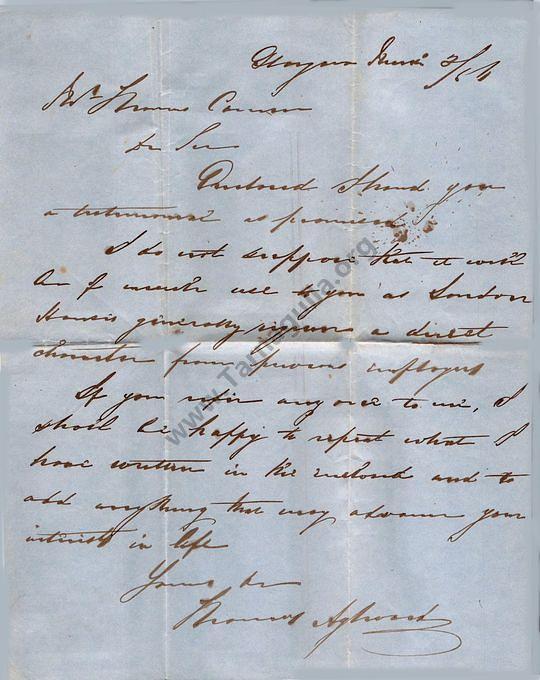 Mr. Thomas
Dr Sir
Enclosed I hand you
a testimonial as promised
I do not suppose that it will
be of much use to you as London
Houses generally require a direct
character from previous employers
If you refer any one to me, I
shall be happy to repeat what I
have written in the enclosed and to
add anything that may advance your
interests in life
Yours
Thomas Aylward
www.Tarnagulla.org